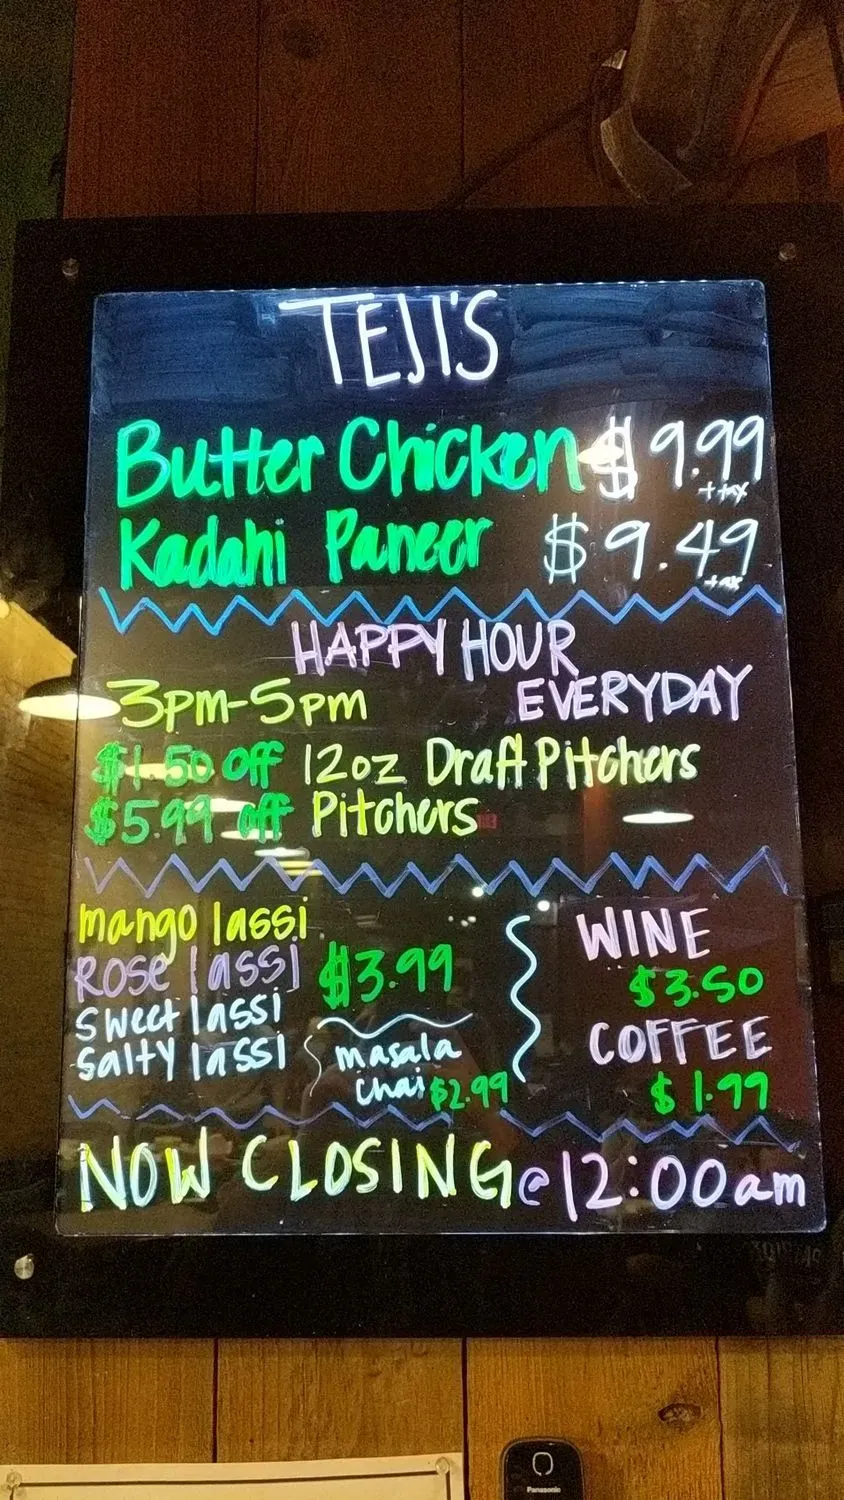 TEJI'S
Butter Chicken $9.99
+tax
Kadahi Paneer $9.49
+tax
HAPPY HOUR
3pm-5pm EVERYDAY
$1.50 off 12oz Draft Pitchers
$5.99 off Pitchers
mango lassi
Rose lassi $3.99
Sweet lassi
Salty lassi
masala
chai $2.99
WINE
$3.50
COFFEE
$1.99
NOW CLOSING @ 12:00am
Panasonic